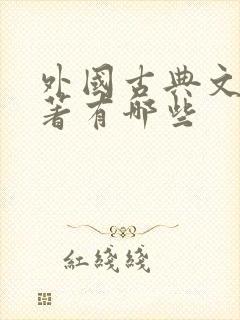 外國古典文
著有哪些
紅綫綫